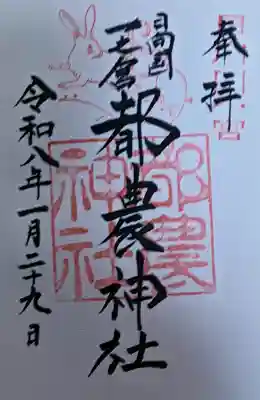 奉拝
日向国
一之宮
都農神社
令和八年一月二十九日
都農
神社